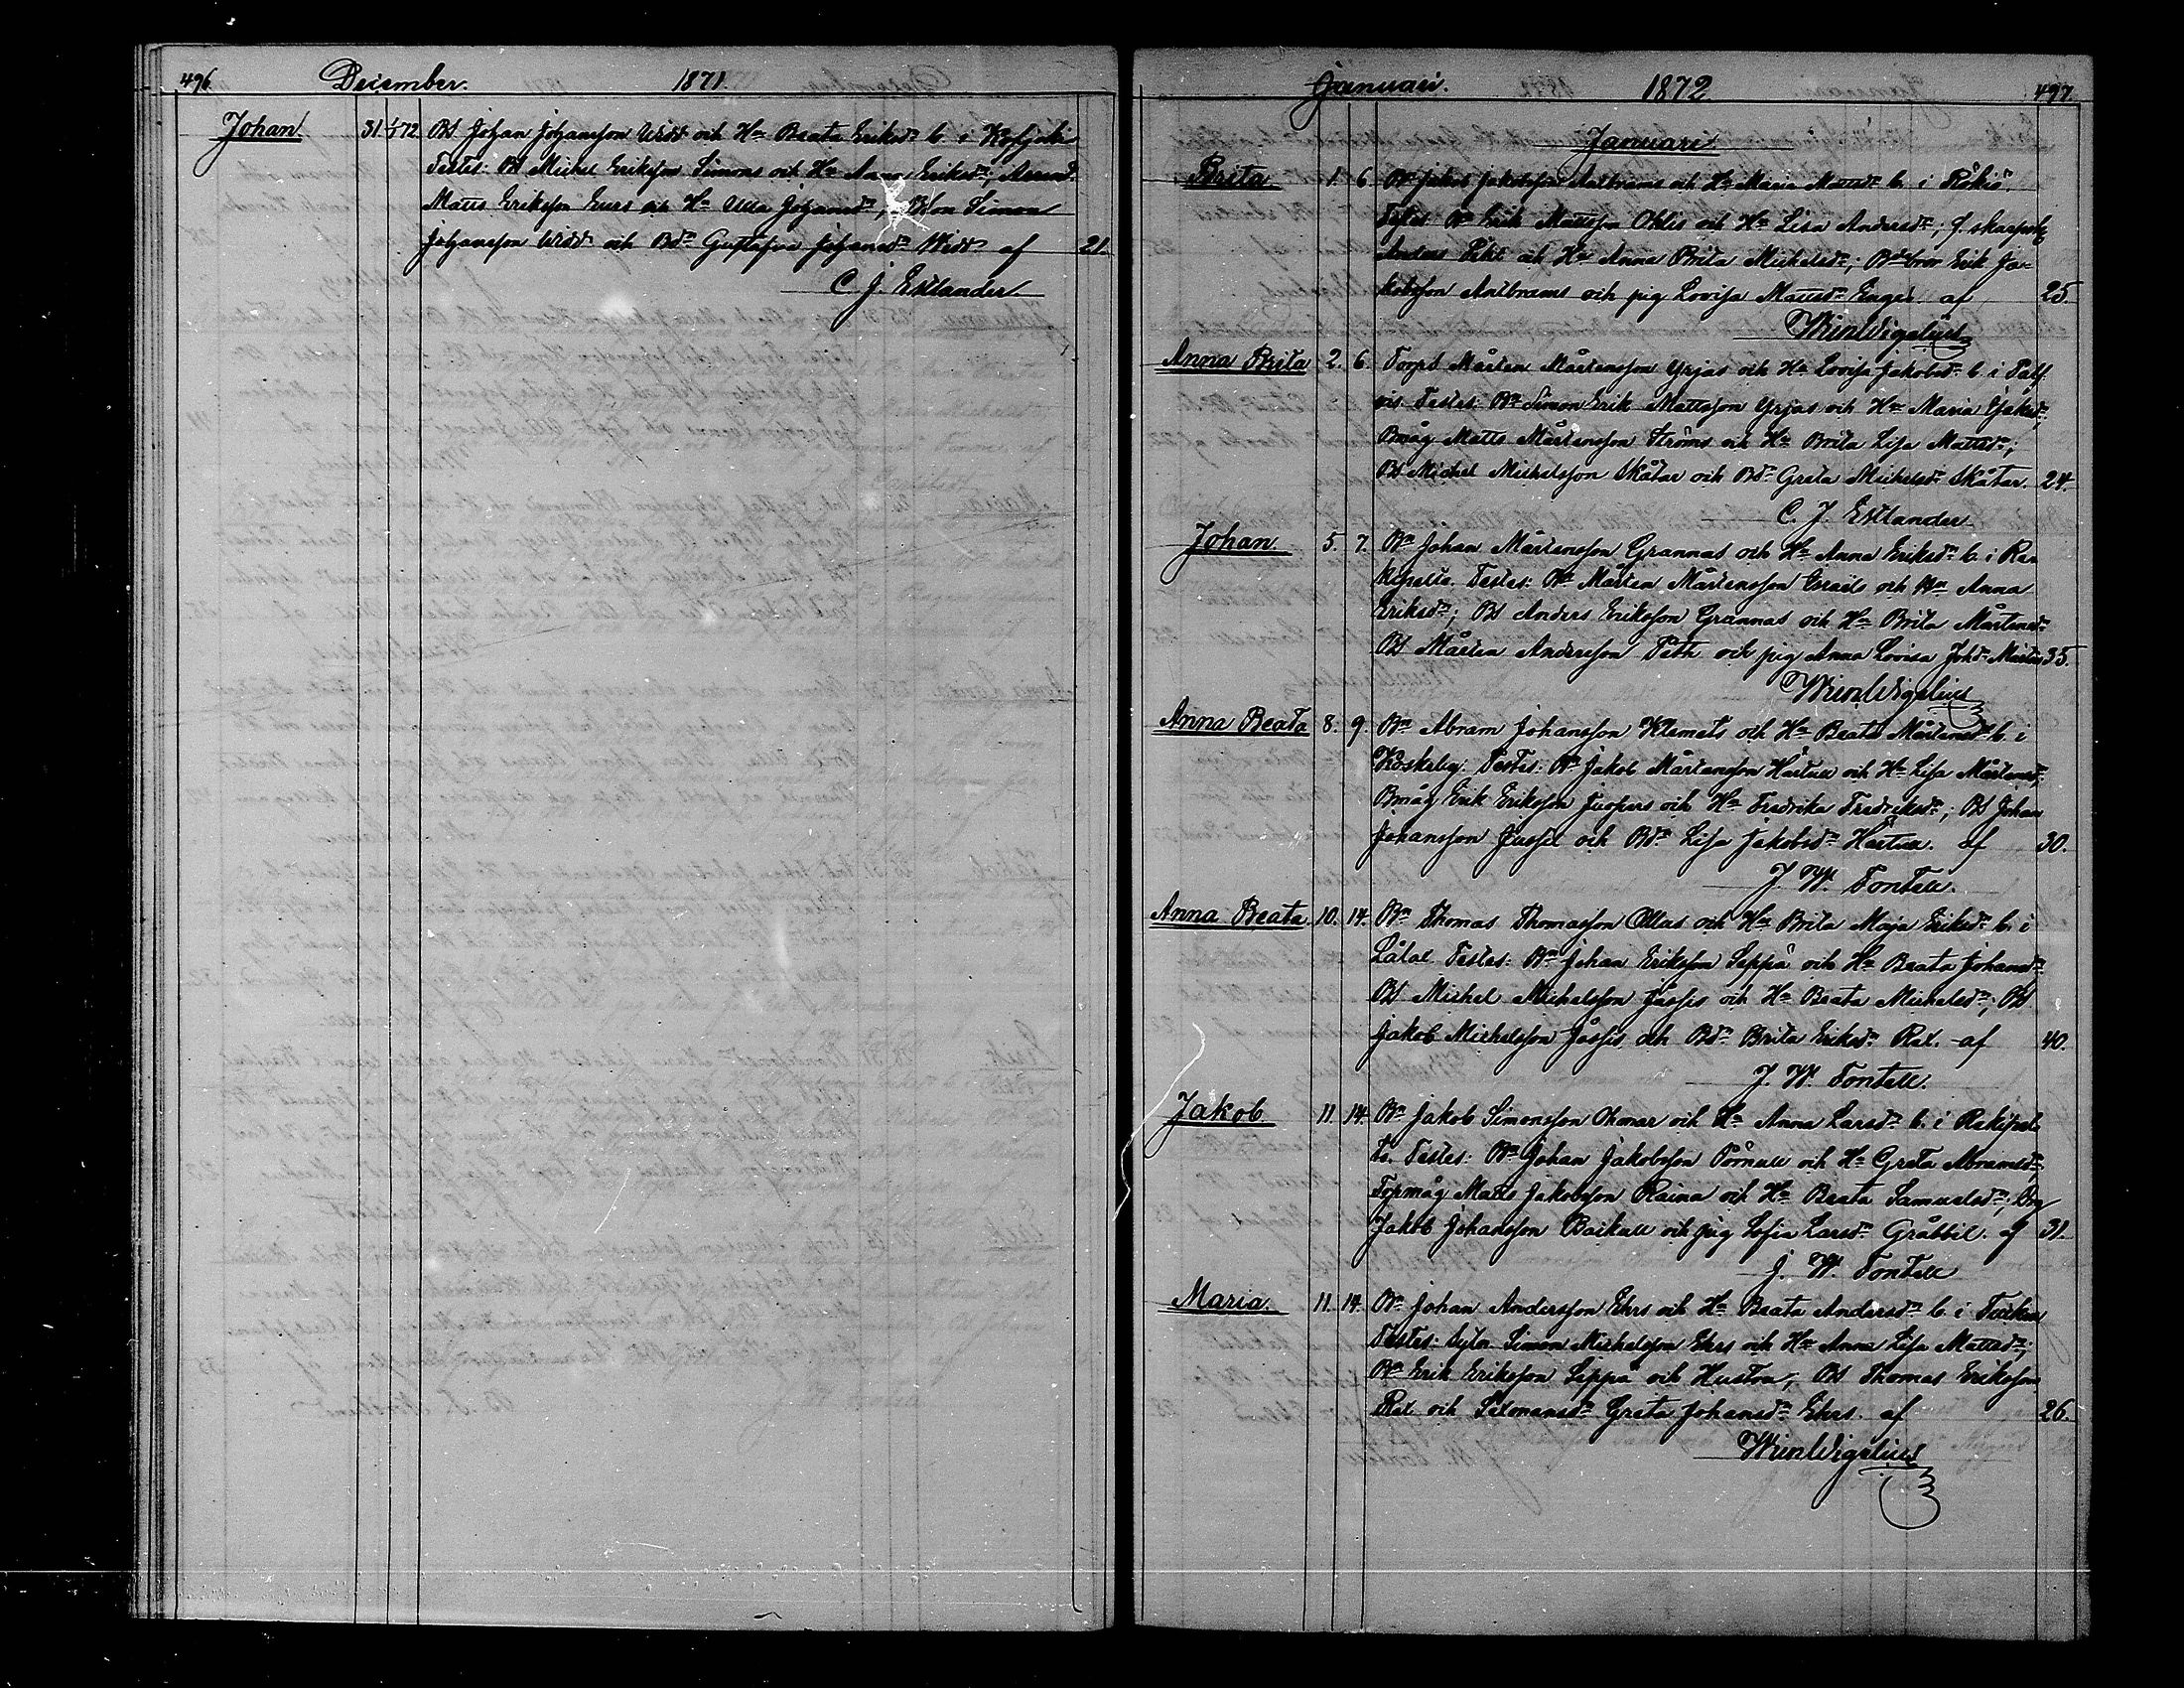 496. December. 1871.
Johan 31. 1/1 72. Bs Johan Johansson Widd och Hu Beata Eriksdr b. i
Testes: Bs Michel Eriksson Simons och Hu Anna Eriksdr;
Matts Eriksson och Hu Ulla Johansdr; Simon
Johansson Widd och Bdr Gustafva Johansdr Widd af 21.
C. J. Estlander.
Januari. 1872. 497.
Januari
Brita 1. 6. Bn Jakob Jakobsson Aalbrams och Hu Maria Mattsdr b. i Rökiö.
Testes: Bn Erik Mattsson och Hu Lisa Andersdr; f. skarpsk
Anders och Hu Anna Brita Michelsdr; Bbror Erik Ja-
kobsson Aalbrams och pig Lovisa Mattsdr af 25.
Wigelius
Anna Brita 2. 6. Torp Mårten Mårtensson Yrjas och Hu Lovisa Jakobsdr b. i
Testes: Bn Simon Erik Mattsson Yrjas och Hu Maria
Bmåg Matts Mårtensson Ströms och Hu Brita Lisa Mattsdr;
Bs Michel Michelsson Skåtar och Bdr Greta Michelsdr Skåtar. 24.
C. J. Estlander
Johan 5. 7. Bn Johan Mårtensson Grannas och Hu Anna Eriksdr b. i Re-
kipelto. Testes: Bn Mårten Mårtensson och Hu Anna
Eriksdr; Bs Anders Eriksson Grannas och Hu Brita Mårtensdr
Bs Mårten Andersson Peth och pig Anna Lovisa Johdr 35.
Wigelius
Anna Beata 8. 9. Bn Abram Johansson Klemets och Hu Beata Mårtensdr b. i
Koskeby. Testes: Bn Jakob Mårtensson och Hu Lisa Mårtensdr;
Bmåg Erik Eriksson och Hu Fredrika Fredriksdr; Bs Johan
Johansson Jussil och Bdr Lisa Jakobsdr af 30.
J. W. Fontell.
Anna Beata 10. 14. Bn Thomas Thomasson Ollas och Hu Brita Maja Eriksdr b. i
Lålal Testes: Bn Johan Eriksson Seppä och Hu Beata Johansdr
Bs Michel Michelsson och Hu Beata Michelsdr; Bs
Jakob Michelsson och Bdr Brita Eriksdr Rex. af 40.
J. W. Fontell.
Jakob 11. 14. Bn Jakob Simonsson och Hu Anna Larsdr b. i Rekipel-
to. Testes: Bn Johan Jakobsson och Hu Greta Abramsdr,
Torpmåg Matts Jakobsson Raina och Hu Beata Samuelsdr;
Jakob Johansson och pig Sofia Larsdr Gråbbil. af 31.
J. W. Fontell
Maria. 11. 14. Bn Johan Andersson Ehrs och Hu Beata Andersdr b. i
Testes: Simon Michelsson Ehrs och Hu Anna Lisa Mattsdr;
Bn Erik Eriksson Seppä och Hustru; Bs Thomas Eriksson
Rex och Greta Johansdr Ehrs. af 26.
Wigelius